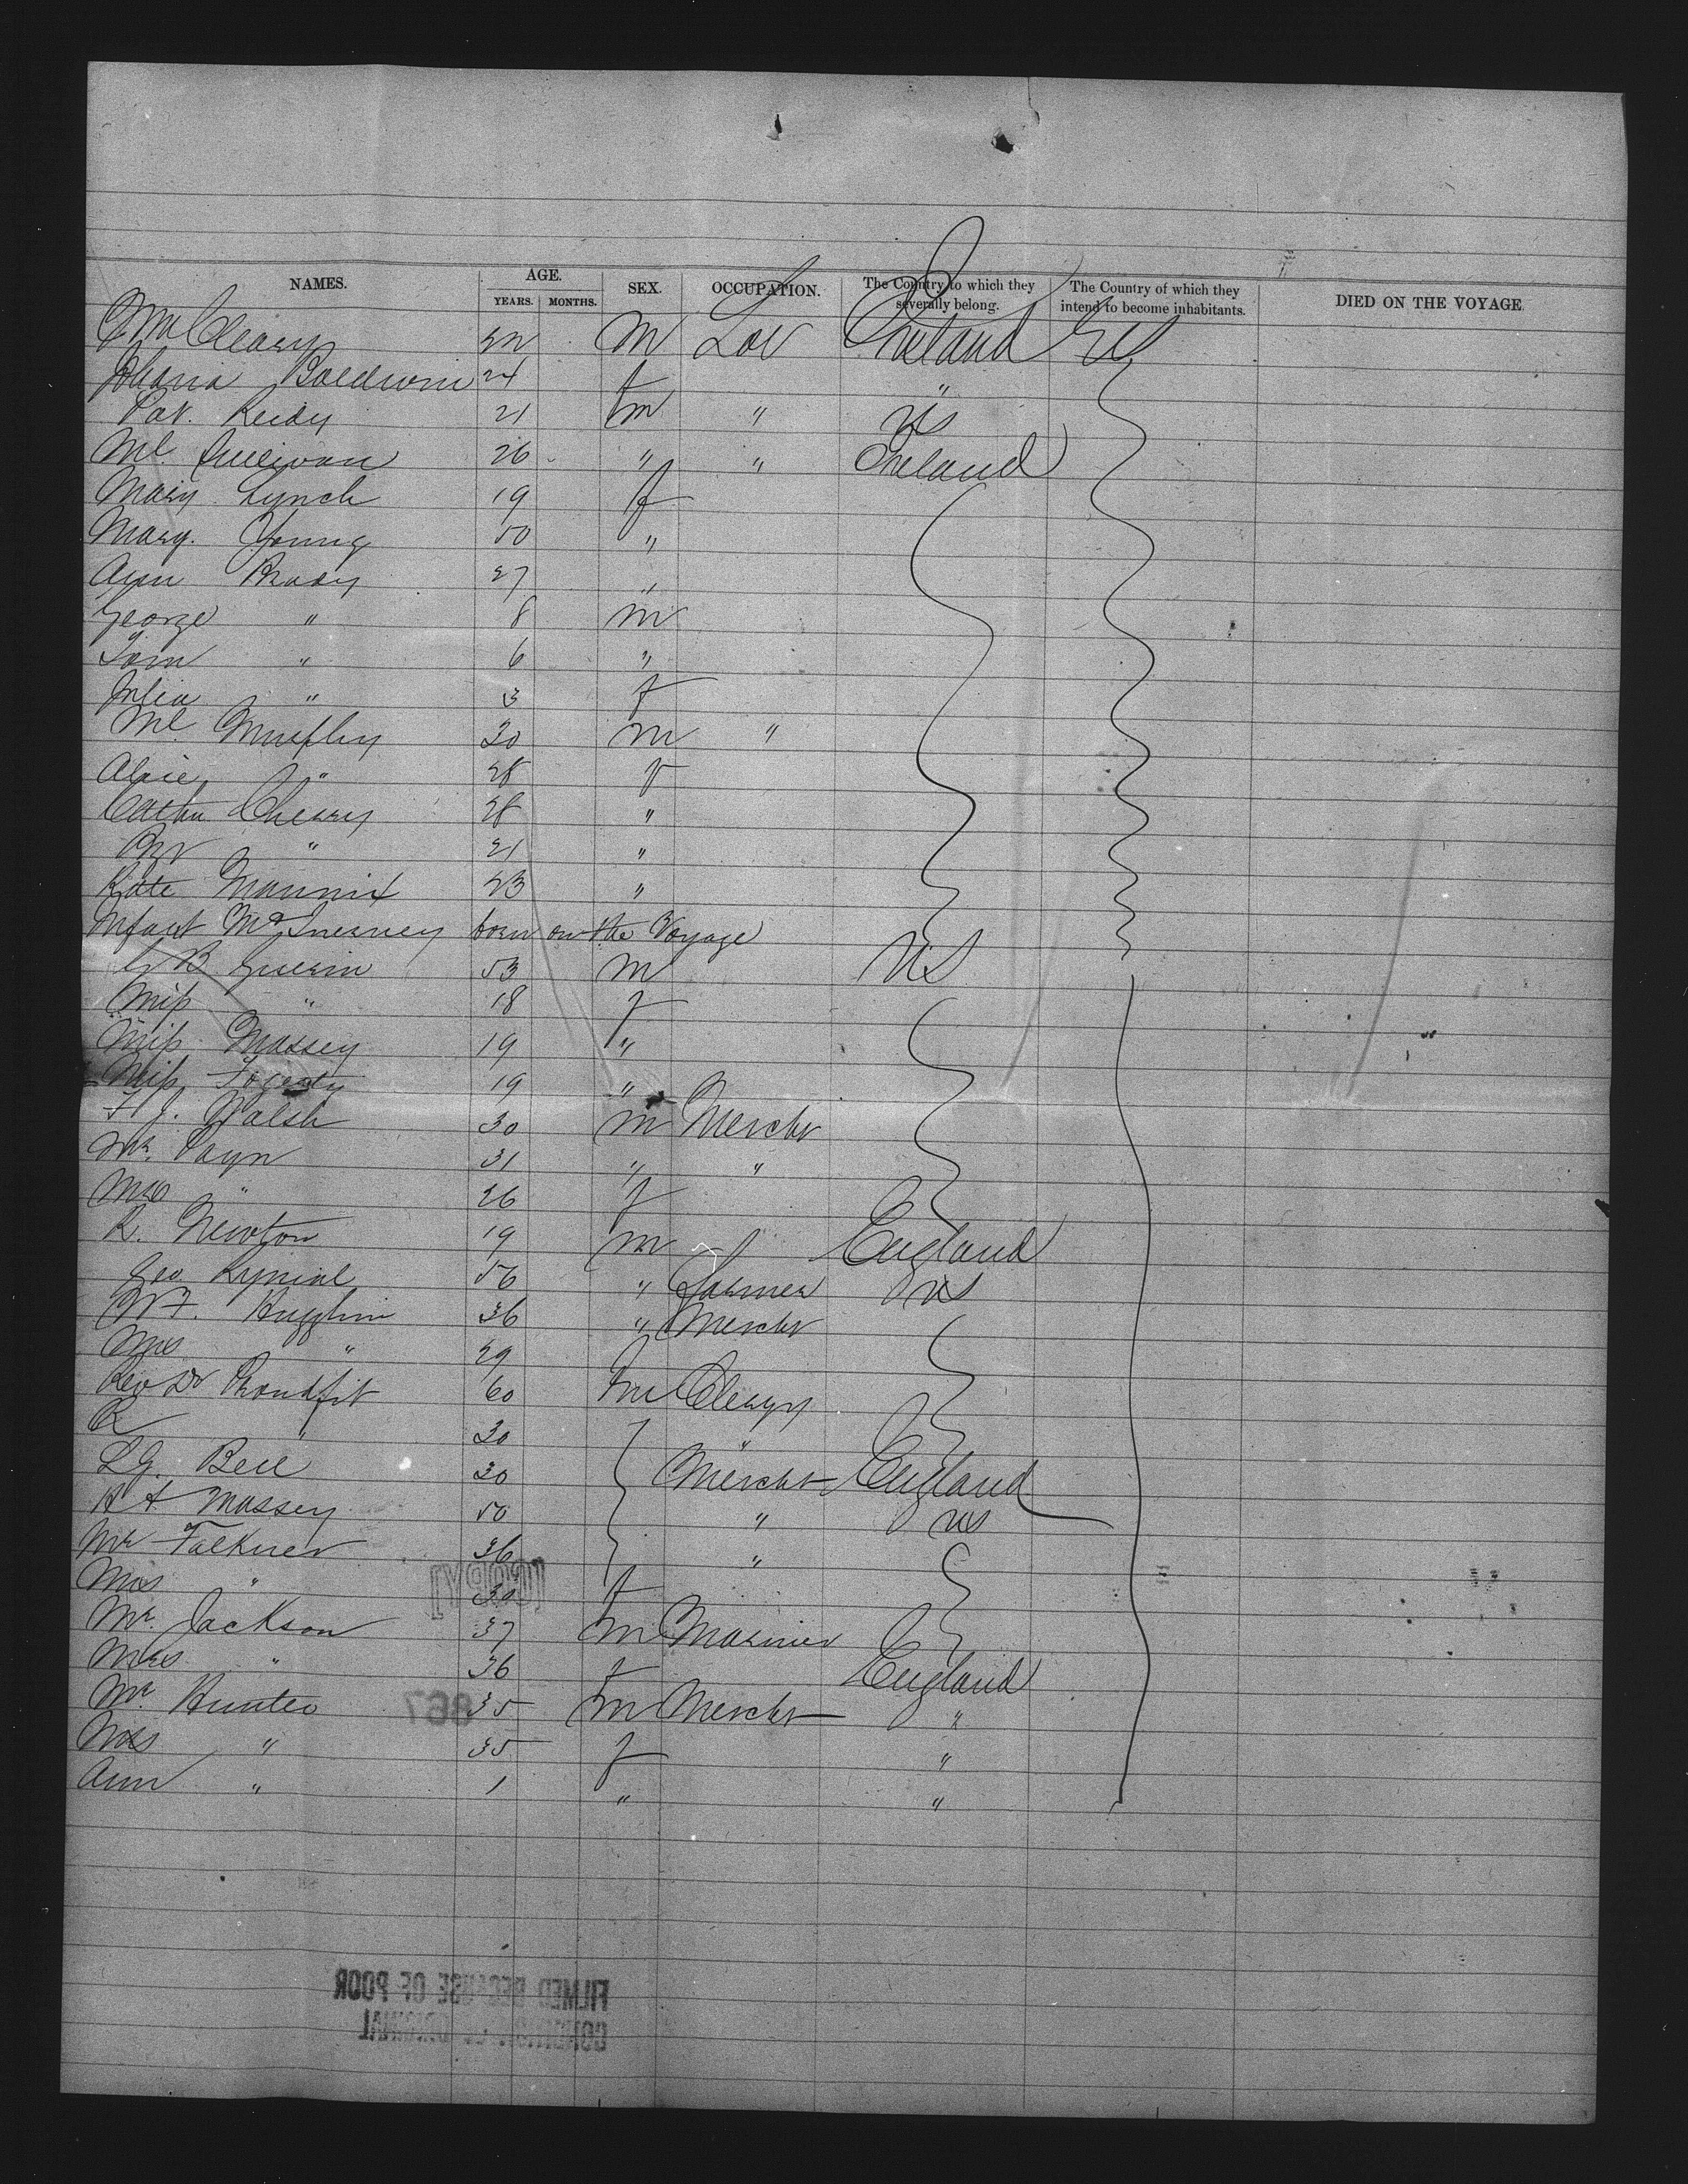 NAMES. AGE. YEARS. MONTHS. SEX. OCCUPATION. The Country to which they severally belong. The Country of which they intend to become inhabitants. DIED ON THE VOYAGE.
Cleary 22 M Lab Ireland US
Johana Baldwin 24 f "
Pat. Reidy 21 m " US
Ml. Sullivan 26 " " Ireland
Mary Lynch 19 f
Mary. Young 50 "
Ann Brady 27 "
George " 8 m
Tom " 6 "
Julia " 3 f
Ml. Murphy 30 m "
Alice " 28 f
Cathn Cheary 28 "
Bgt " 21 "
Kate Mannix 23 "
Infant McInerney born on the Voyage
B Guerin 53 m US
Miss " 18 f
Miss Massey 19 "
Miss Fogerty 19 "
J. Walsh 30 m Mercht
Mr. Payn 31 " "
Mrs " 26 f
R. Newton 19 m England
Geo 56 " Farmer US
36 " Mercht
Mrs " 29
Rev Dr Proudfit 60 m Clergy
R " 30 "
L.G. Bell 30 Mercht England
Massey 50 " US
Mr Falkner 36 "
Mrs " 30 f
Mr. Jackson 37 m Mariner
Mrs " 36 f England
Mr. Hunter 35 m Mercht "
Mrs " 35 f "
Ann " 1 " "
[COPY]
867
FILMED BECAUSE OF POOR
CONDITION OF ORIGINAL